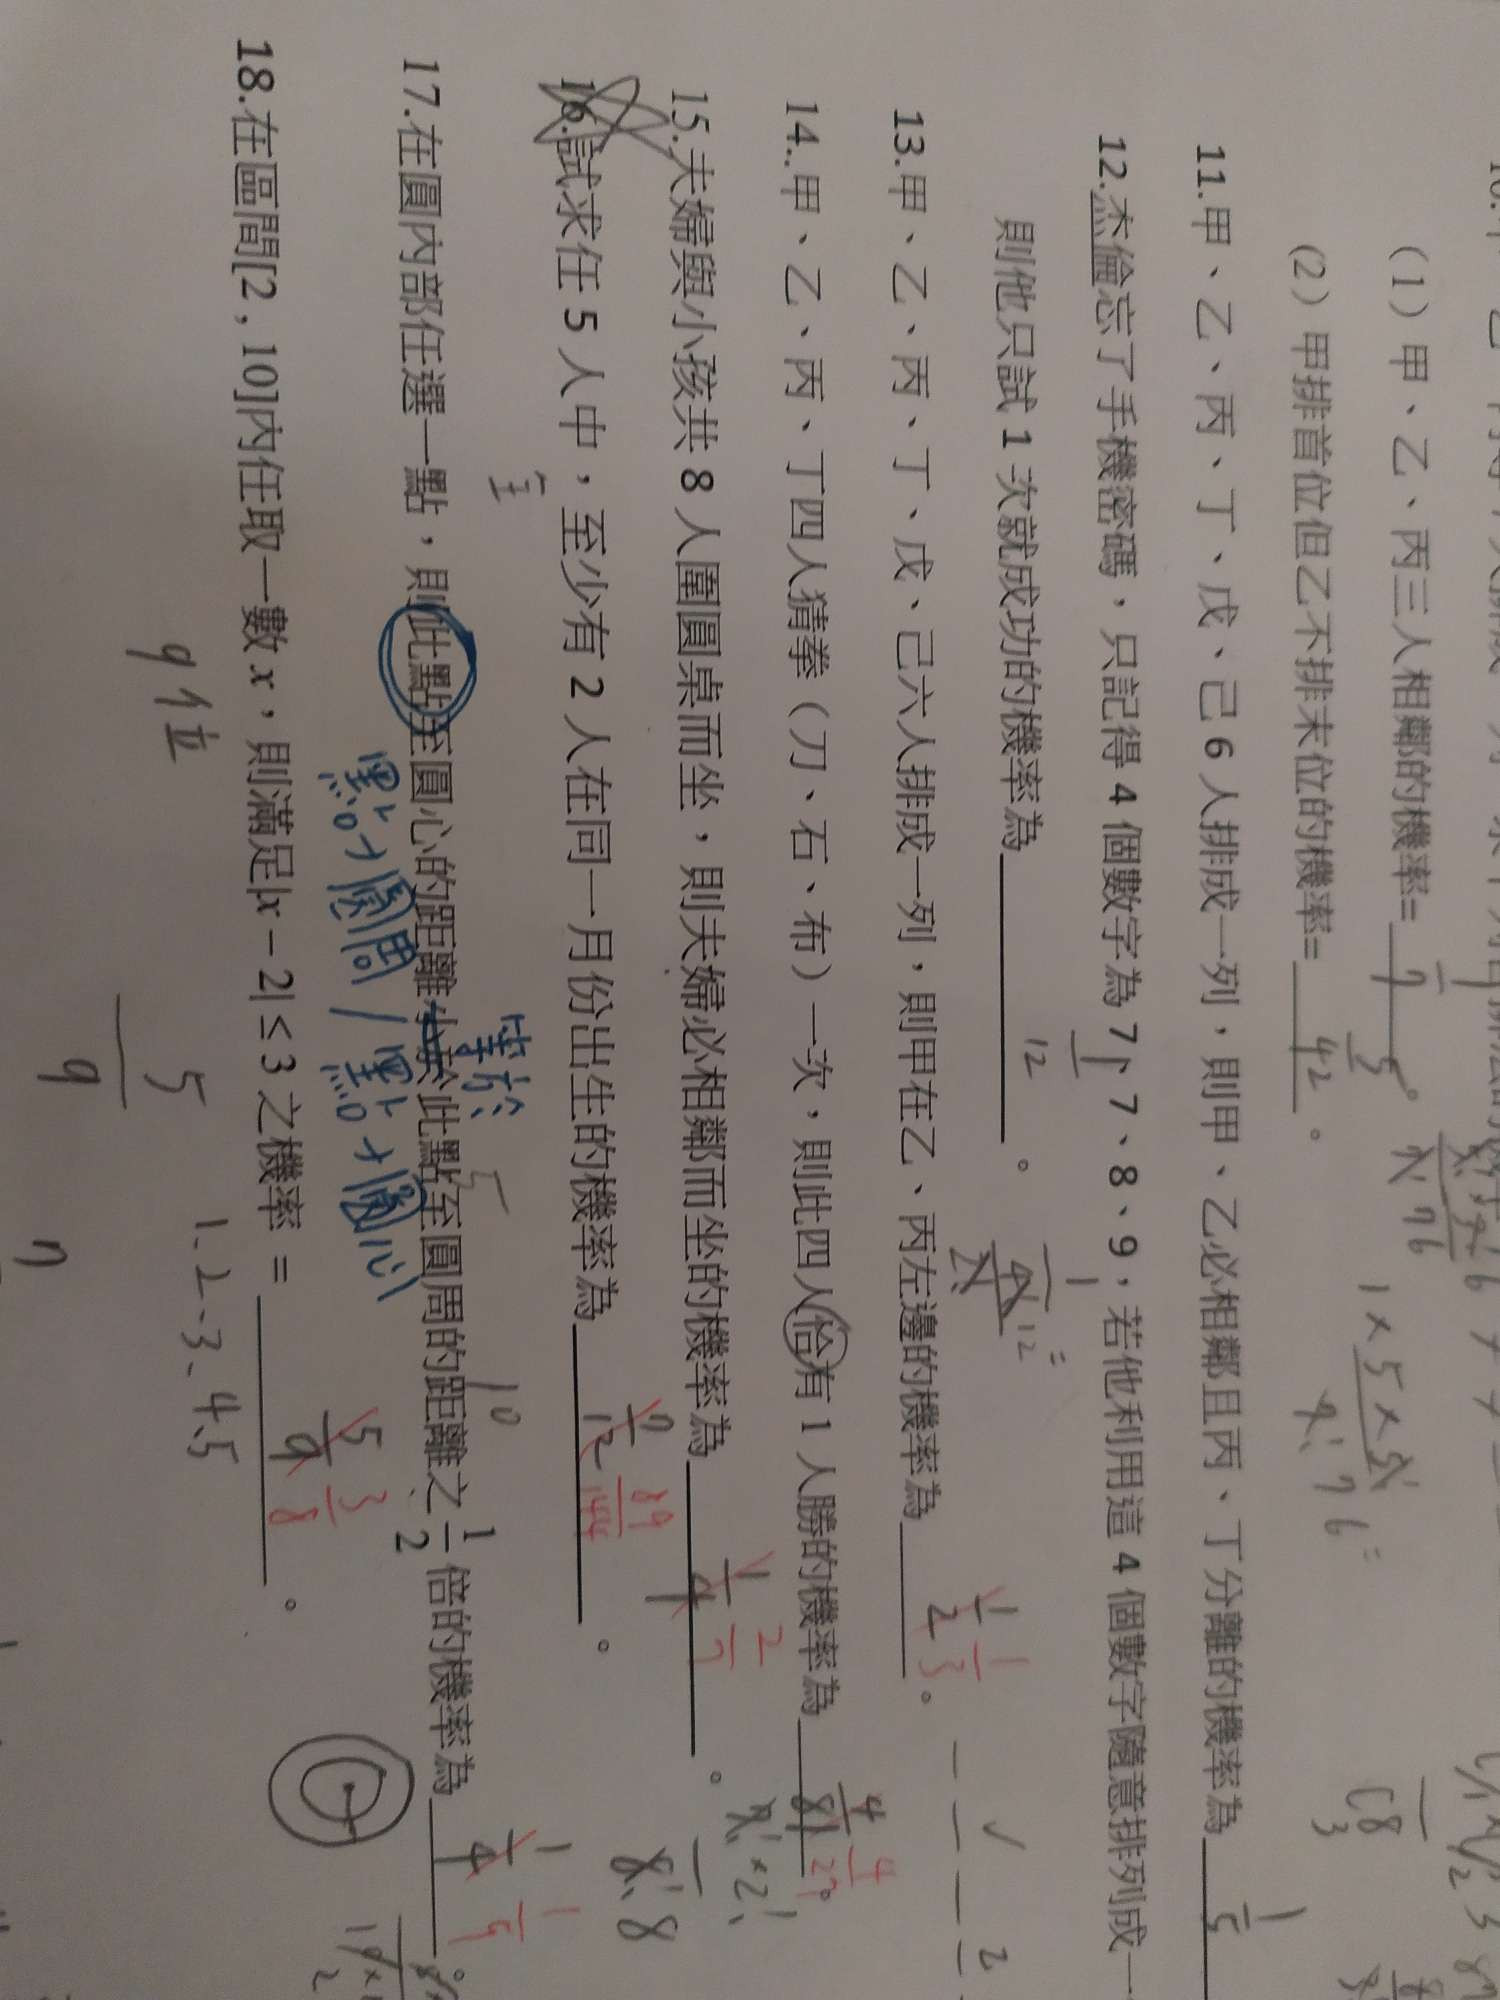 (1) 甲、乙、丙三人相鄰的機率= 1/7 。
(2) 甲排首位但乙不排末位的機率= 5/42 。
11.甲、乙、丙、丁、戊、己 6 人排成一列，則甲、乙必相鄰且丙、丁分離的機率為 1/5
12.杰倫忘了手機密碼，只記得 4 個數字為 7、7、8、9，若他利用這 4 個數字隨意排列成一
則他只試 1 次就成功的機率為 1/12 。
13.甲、乙、丙、丁、戊、己六人排成一列，則甲在乙、丙左邊的機率為 1/2 1/3 。
14..甲、乙、丙、丁四人猜拳（刀、石、布）一次，則此四人恰有 1 人勝的機率為 4/81 4/27 。
15.夫婦與小孩共 8 人圍圓桌而坐，則夫婦必相鄰而坐的機率為 1/4 2/7 。
16.試求任 5 人中，至少有 2 人在同一月份出生的機率為 7/12 89/144 。
17.在圓內部任選一點，則此點至圓心的距離小於此點至圓周的距離之 1/2 倍的機率為 1/4 1/9 。
等於
點到圓周 / 點到圓心
18.在區間[2 , 10]內任取一數 x，則滿足|x − 2| ≤ 3 之機率 = 5/9 3/8 。
9位
5/9
1、2、3、4、5